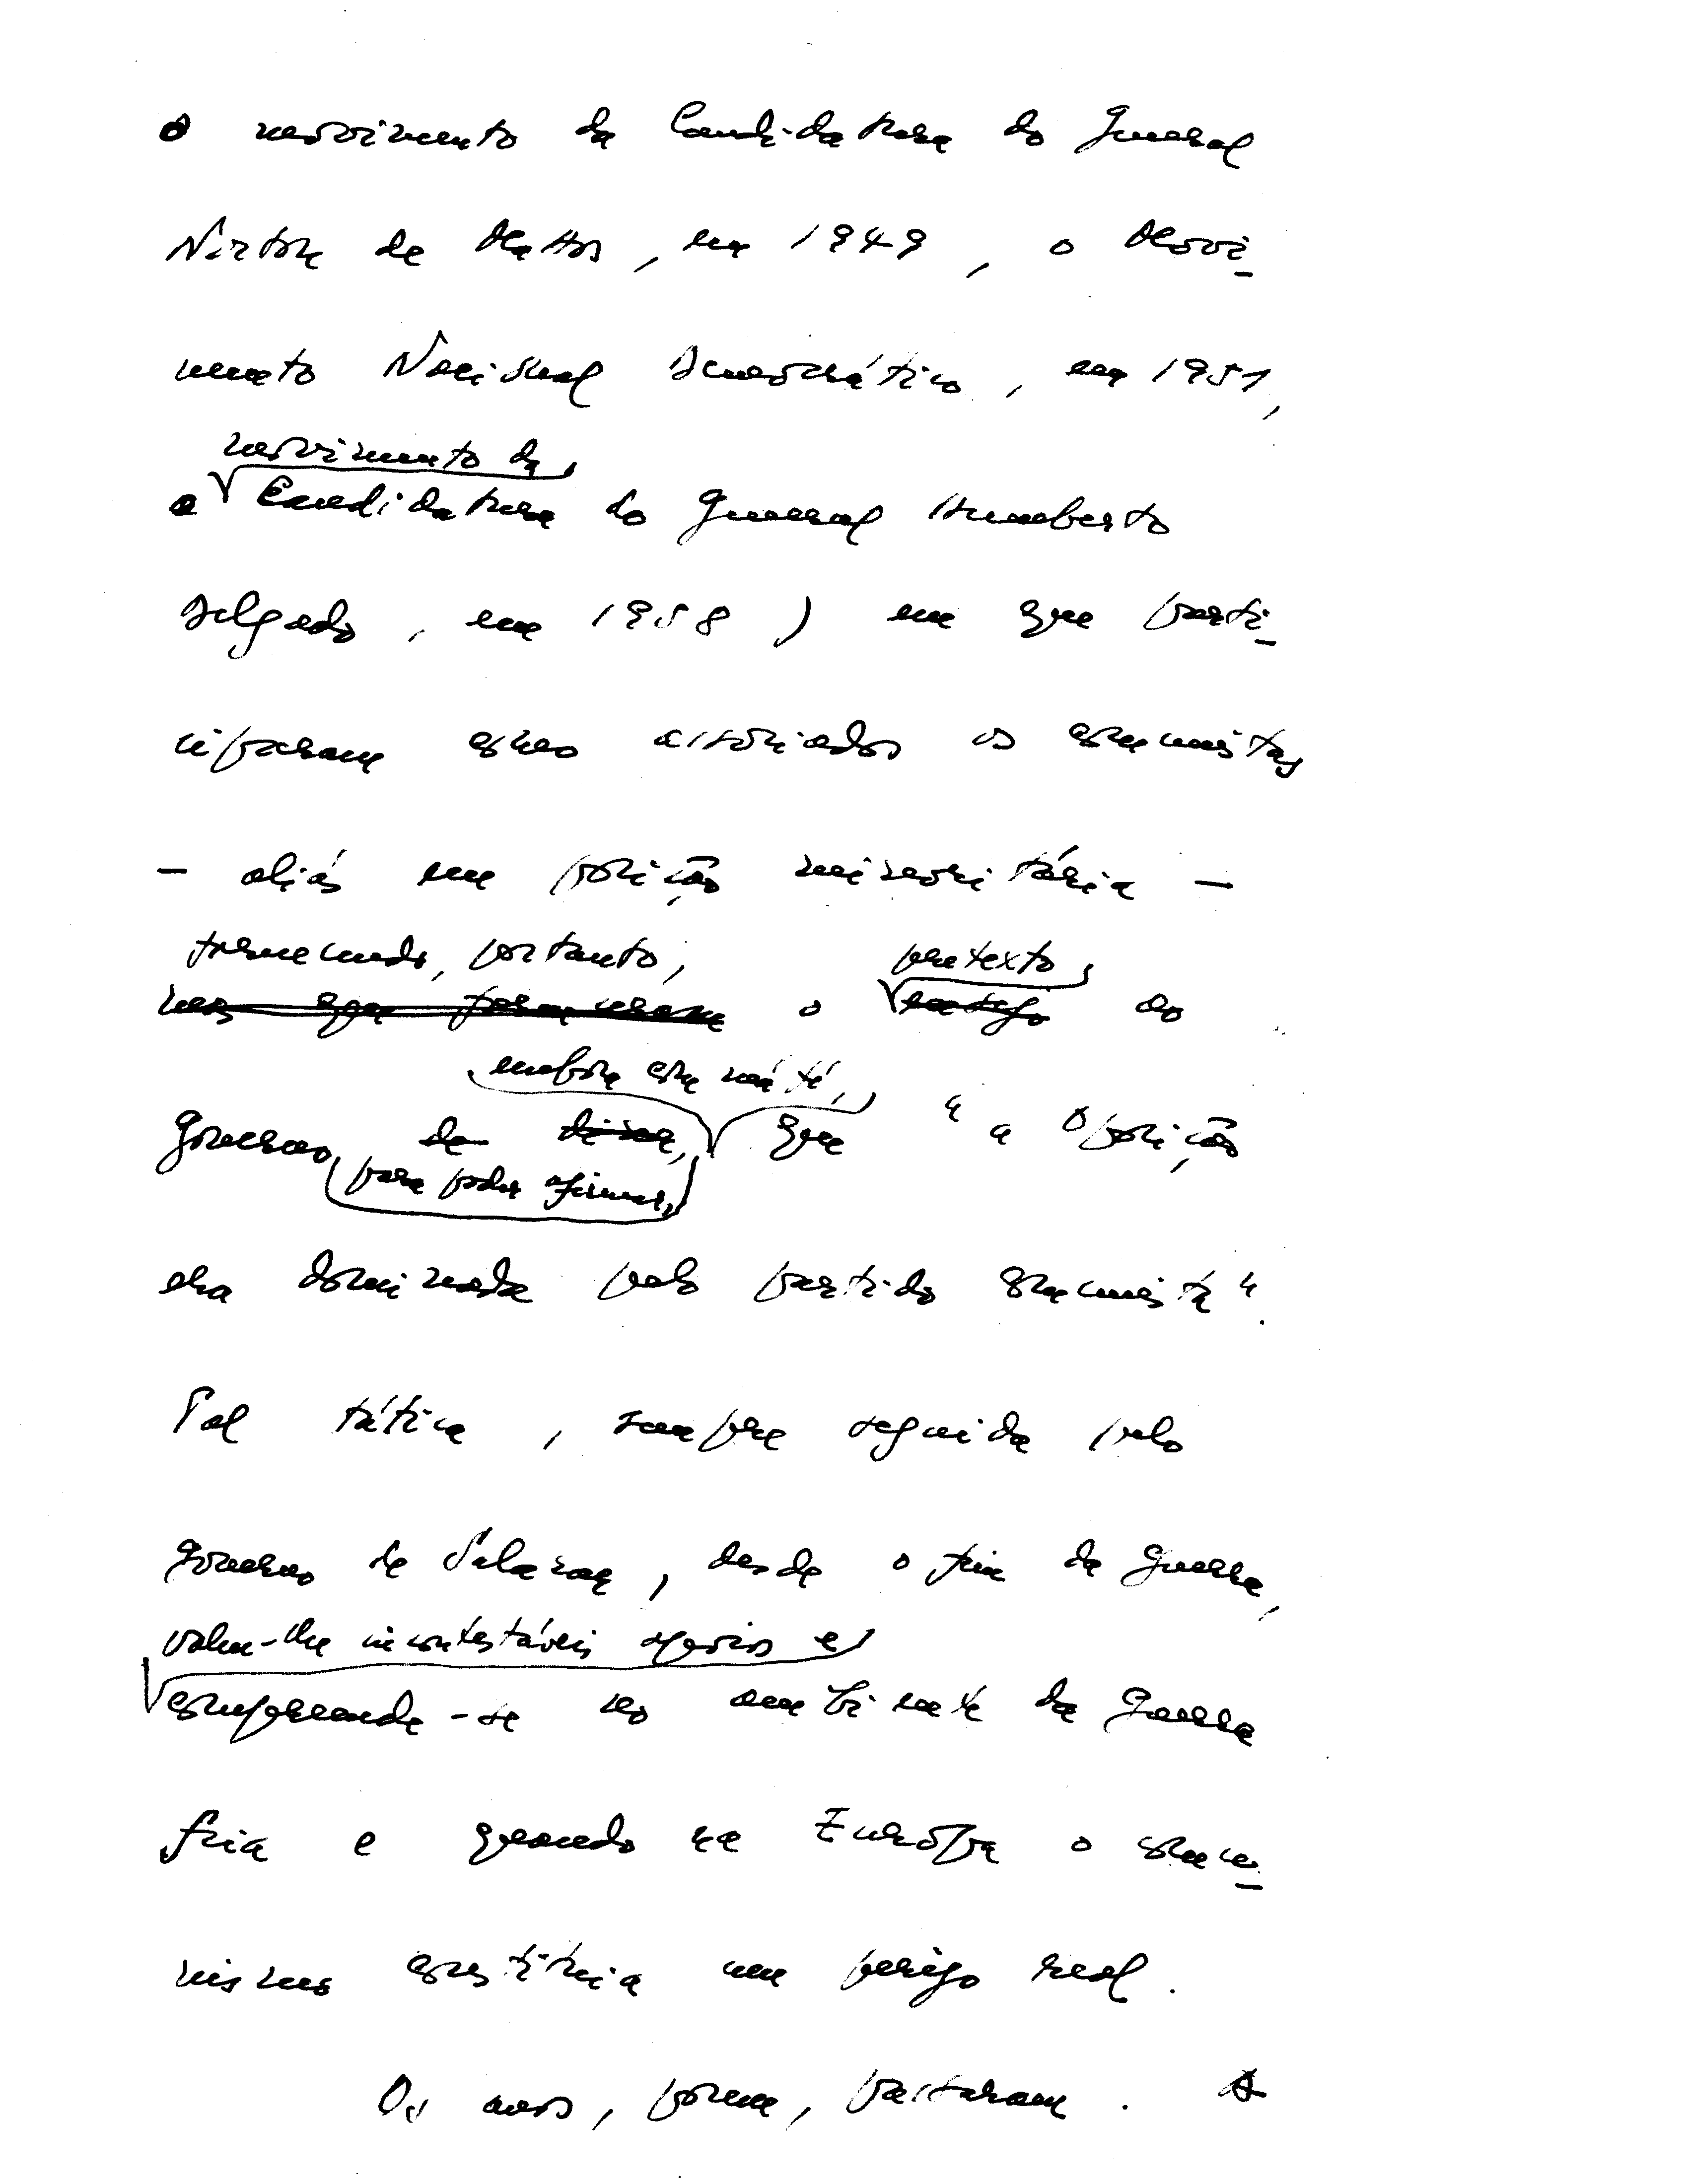 o movimento da Candidatura do General
Norton de Mattos, em 1949, o Movi-
mento Nacional Democrático, em 1951,
movimento da
o Candidatura do General Humberto
Delgado, em 1958) em que parti-
ciparam como associados os comunistas
- aliás em posição minoritária -
fornecendo, portanto, pretexto
mas que forneceram o ao
embora com má fé,
Governo de dizer, que "a Oposição
para poder afirmar,
era dominada pelo partido comunista".
Tal tática, sempre seguida pelo
governo de Salazar, desde o fim da guerra,
valeu-lhe incontestáveis apoios e
compreende-se no ambiente da guerra
fria e quando na Europa o comu-
nismo constituia um perigo real.
Os anos, porém, passaram. A